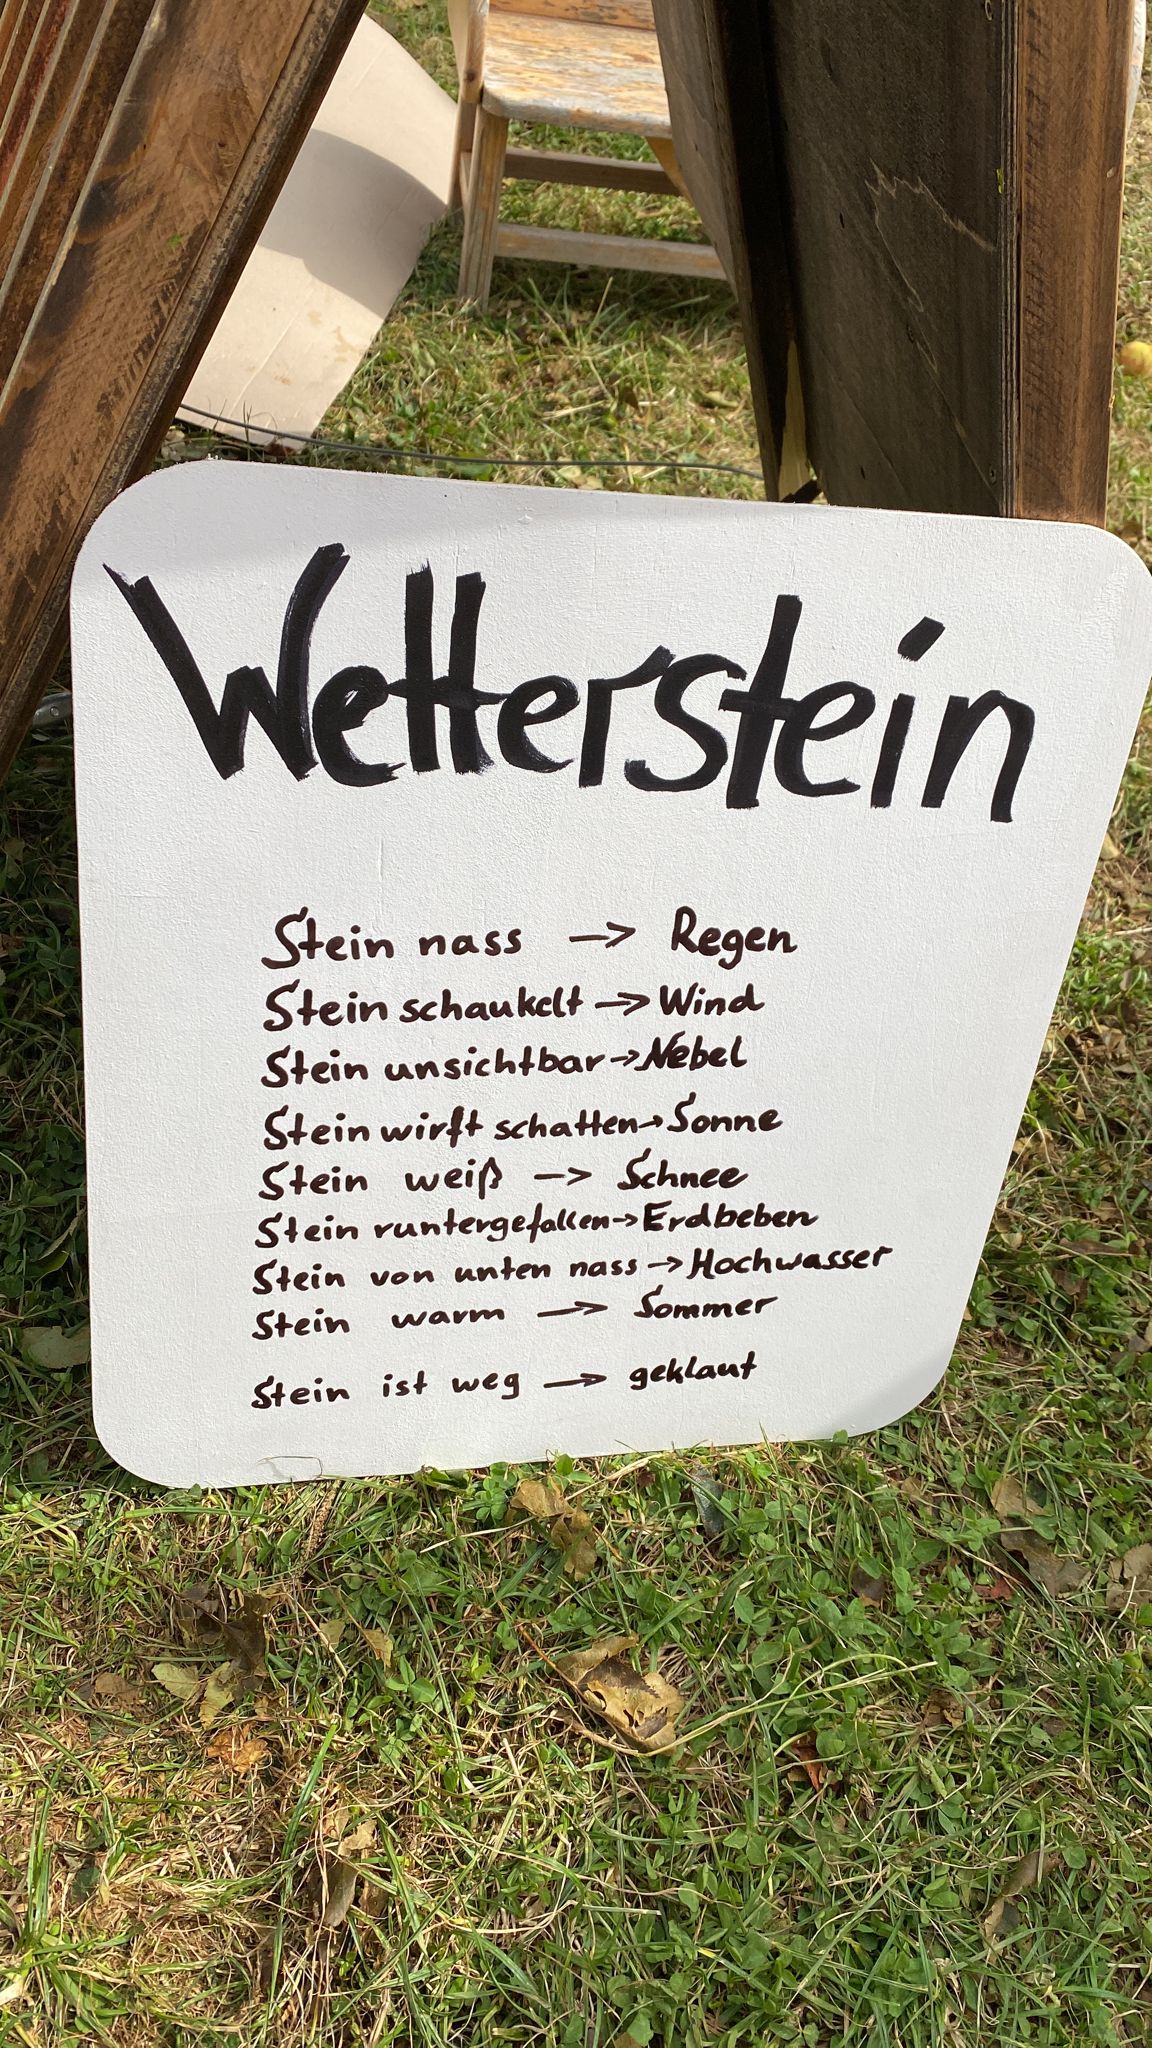 Wetterstein
Stein nass -> Regen
Stein schaukelt -> Wind
Stein unsichtbar -> Nebel
Stein wirft schatten -> Sonne
Stein weiß -> Schnee
Stein runtergefallen -> Erdbeben
Stein von unten nass -> Hochwasser
Stein warm -> Sommer
Stein ist weg -> geklaut